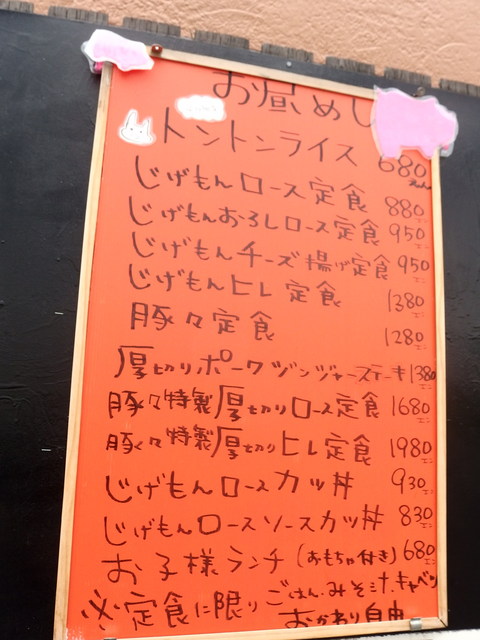 お昼めし
トントンライス 680
じげもんロース定食 880
じげもんおろしロース定食 950
じげもんチーズ揚げ定食 950
じげもんヒレ定食 1380
豚々定食 1280
厚切りポークジンジャーステーキ 1380
豚々特製厚切りロース定食 1680
豚々特製厚切りヒレ定食 1980
じげもんロースカツ丼 930
じげもんロースソースカツ丼 830
お子様ランチ(おもちゃ付き) 680
※定食に限りごはん・みそ汁・キャベツ
おかわり自由